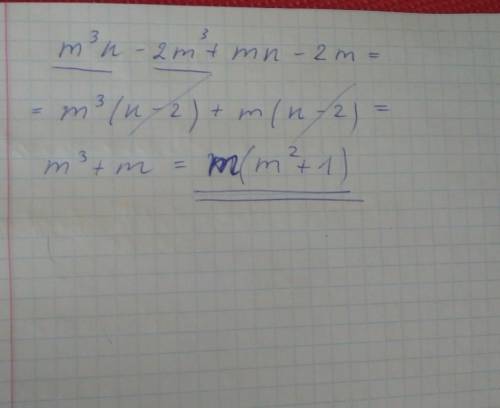 m³n - 2m³ + mn - 2m =
= m³(n-2) + m(n-2) =
m³ + m = m(m² + 1)